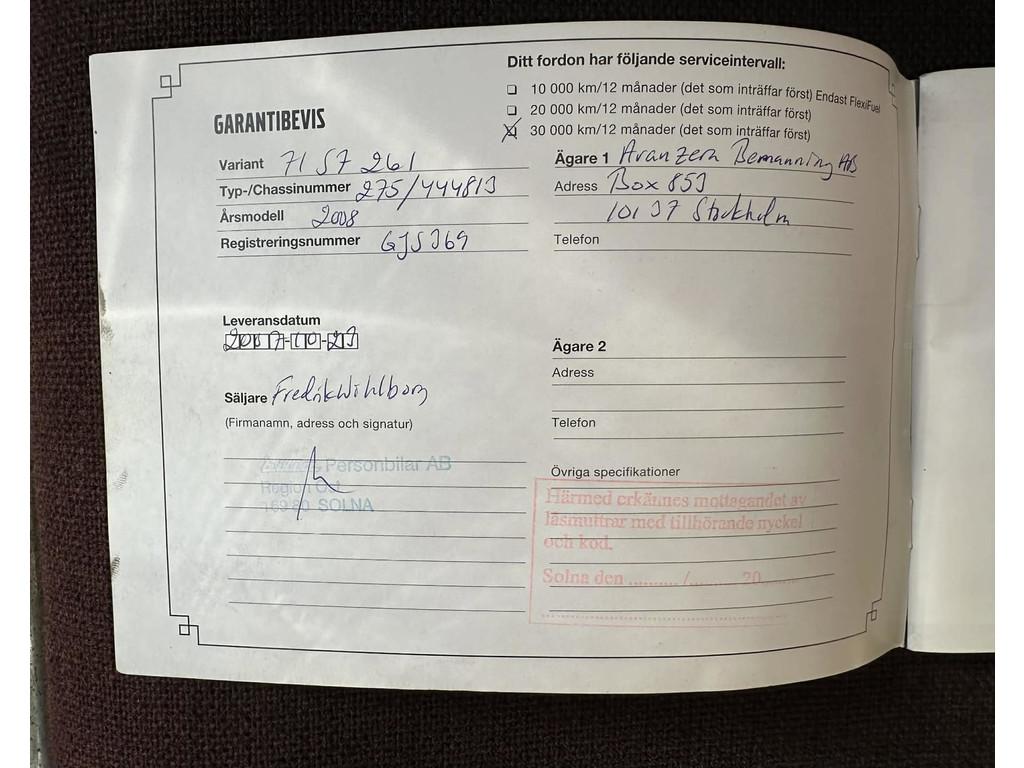 Ditt fordon har följande serviceintervall:
10 000 km/12 månader (det som inträffar först) Endast FlexiFuel
20 000 km/12 månader (det som inträffar först)
30 000 km/12 månader (det som inträffar först)
GARANTIBEVIS
Variant 71 S7 261
Typ-/Chassinummer 275/444813
Årsmodell 2008
Registreringsnummer GJS369
Leveransdatum
2007-10-23
Säljare Fredrik Wihlborg
(Firmanamn, adress och signatur)
Personbilar AB
Region Öst
SOLNA
Ägare 1 Avanzera Bemanning AB
Adress Box 853
101 37 Stockholm
Telefon
Ägare 2
Adress
Telefon
Övriga specifikationer
Härmed erkännes mottagandet av
låsmuttrar med tillhörande nyckel
och kod.
Solna den ........../.......... 20........